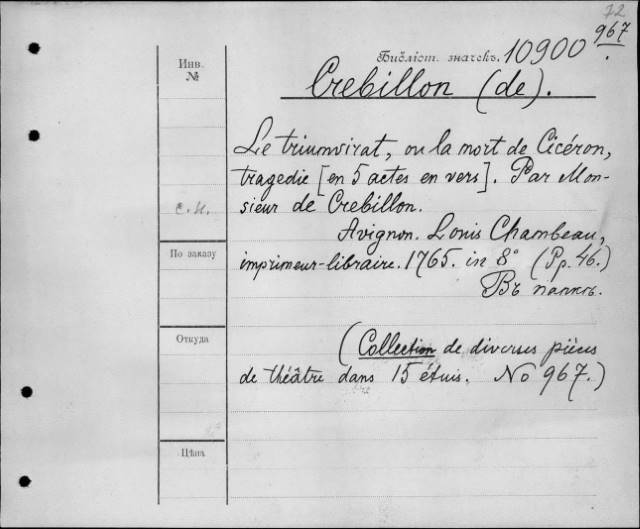 72
Библіот. значекъ. 10900 967.
Инв.
№
Crebillon (de).
Le triumvirat, ou la mort de Cicéron,
tragedie [en 5 actes en vers]. Par Mon-
sieur de Crebillon.
с.н.
Avignon. Louis Chambeau,
По заказу
imprimeur-libraire. 1765. in 8° (Pp. 46.)
Въ папкѣ.
Откуда
(Collection de diverses pièces
de théâtre dans 15 étuis. No 967.)
Цѣна